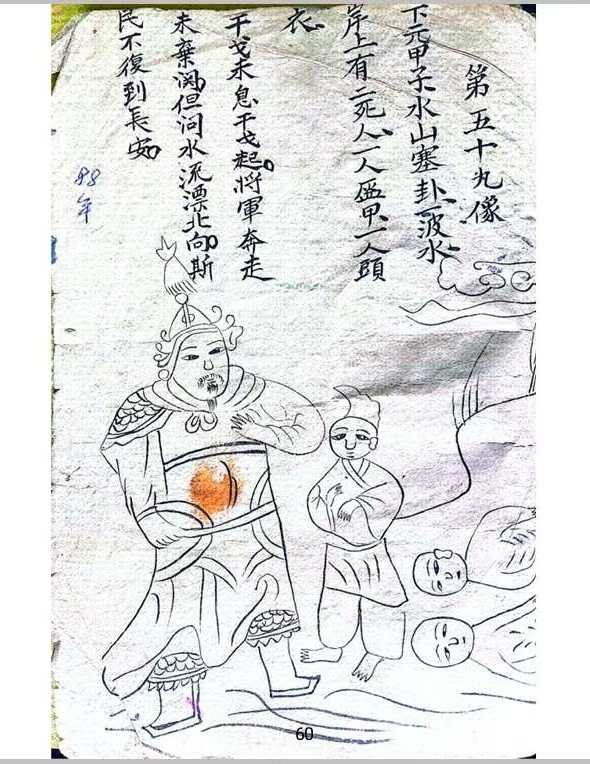 第五十九像
下元甲子水山塞卦一波水
岸上有二死人一人盔甲一人頭
衣
干戈未息干戈起將軍奔走
未棄但问水流漂北向斯
民不復到長安
88年
60